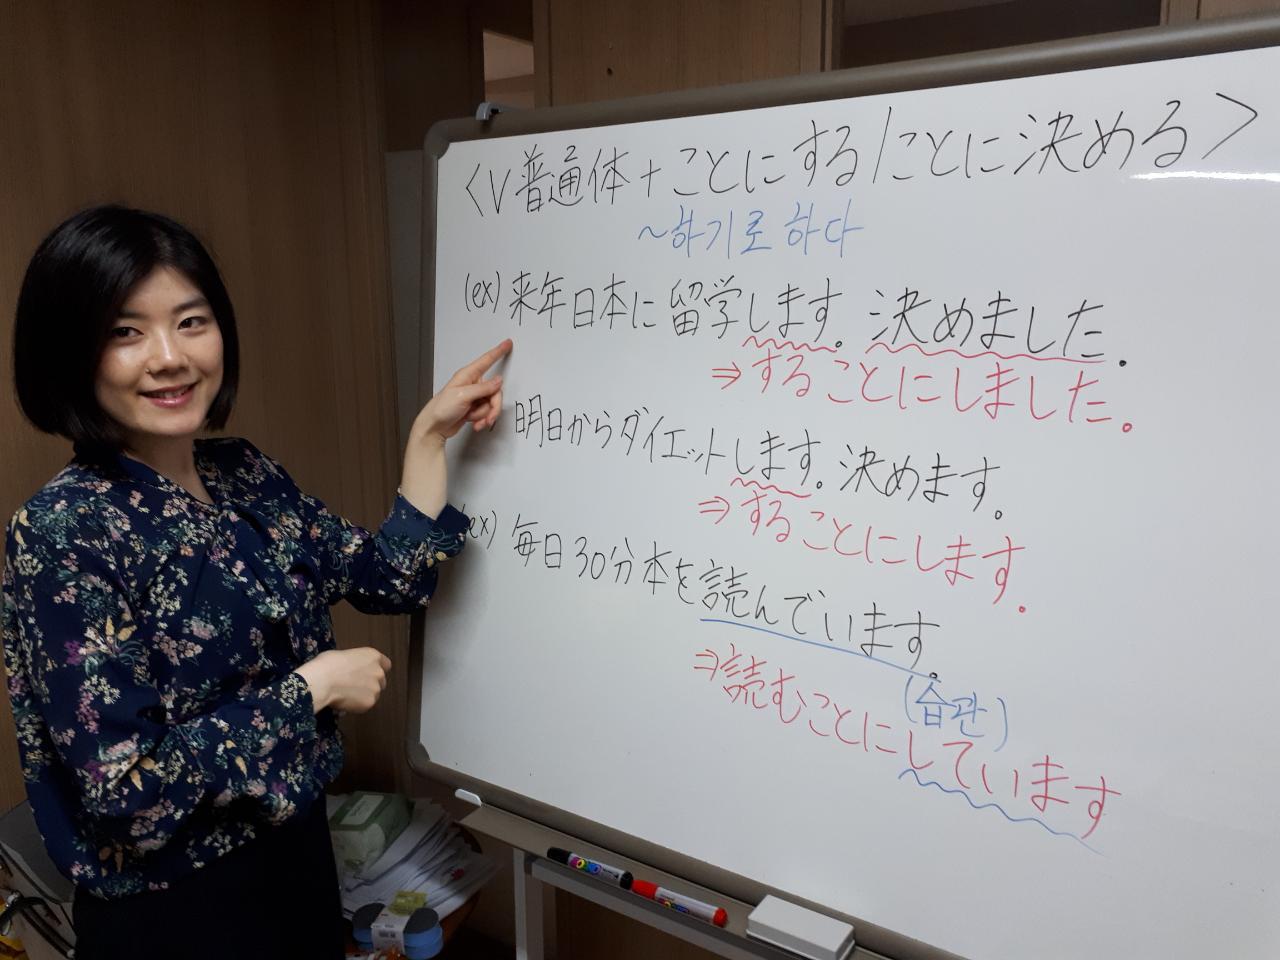 <V普通体+ことにする/ことに決める>
~하기로 하다
(ex) 来年日本に留学します。決めました。
⇒することにしました。
明日からダイエットします。決めます。
⇒することにします。
(ex) 毎日30分本を読んでいます。
(습관)
⇒読むことにしています